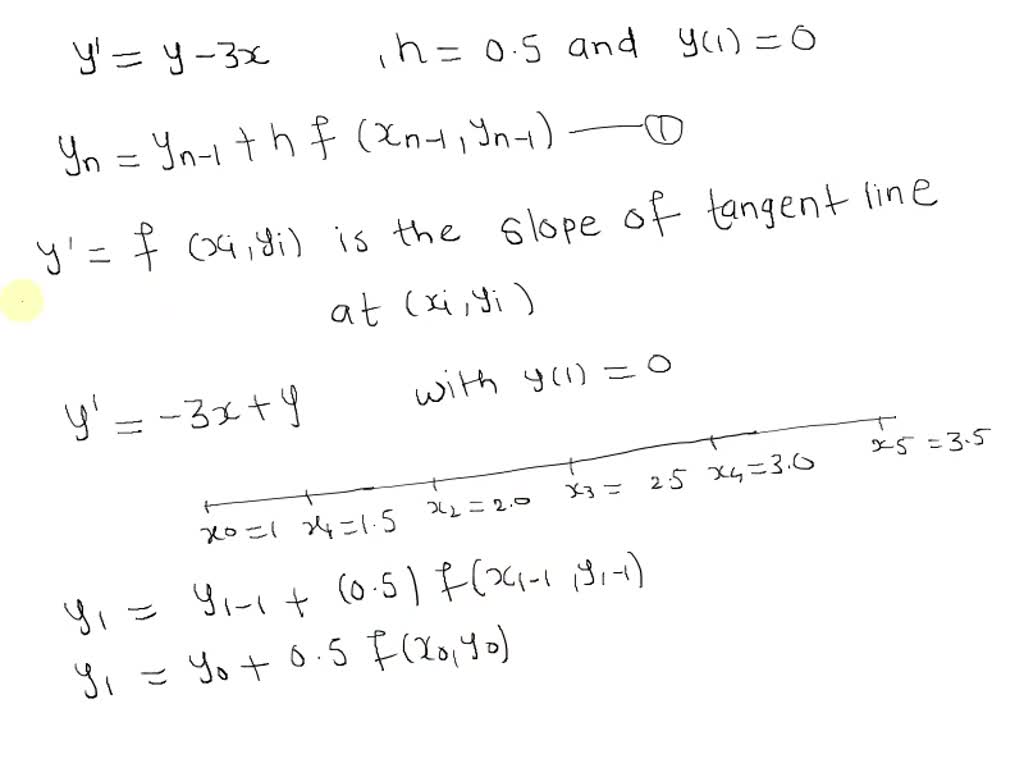 y' = y - 3x , h = 0.5 and y(1) = 0
yn = yn-1 + h f (xn-1, yn-1) — ①
y' = f (xi, yi) is the slope of tangent line
at (xi, yi)
y' = -3x + y with y(1) = 0
x0 = 1 x1 = 1.5 x2 = 2.0 x3 = 2.5 x4 = 3.0 x5 = 3.5
y1 = y1-1 + (0.5) f(x1-1, y1-1)
y1 = y0 + 0.5 f(x0, y0)